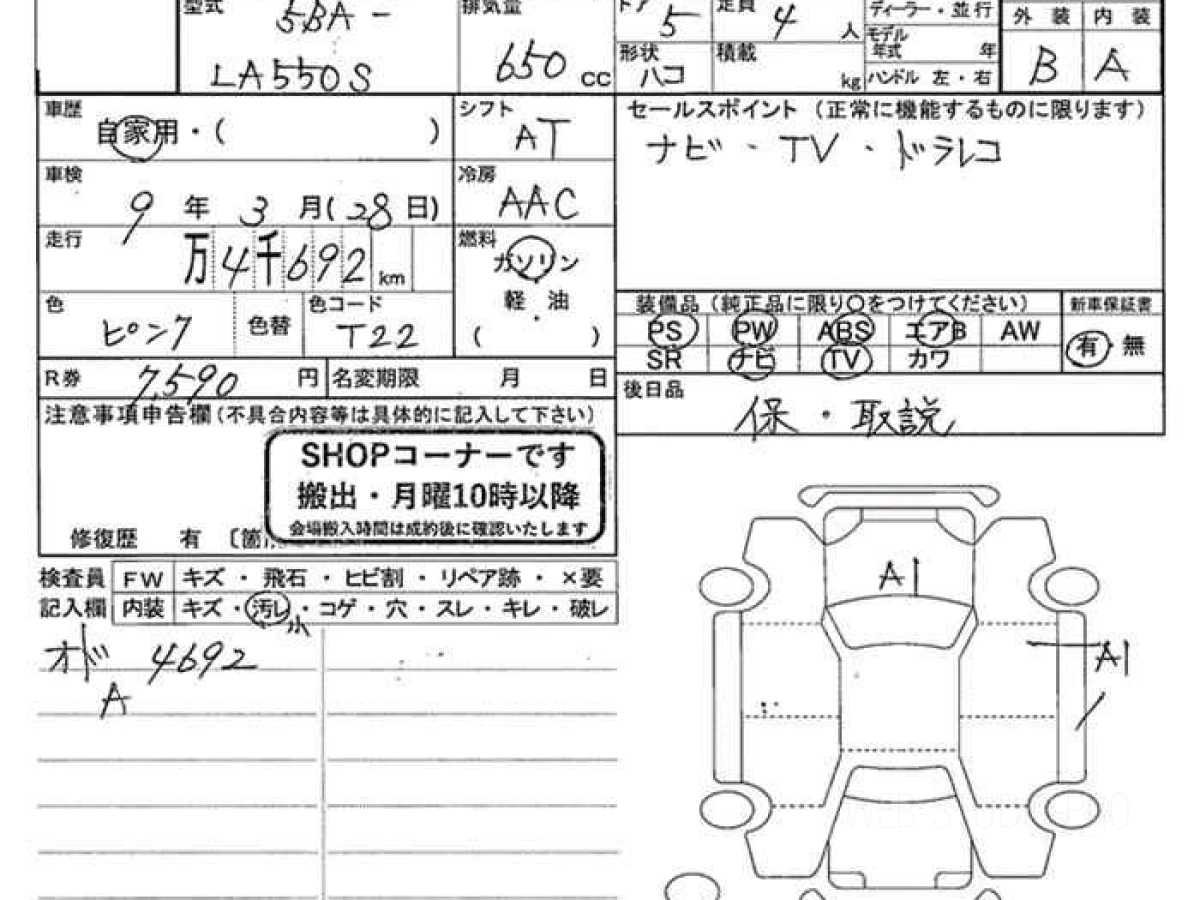 型式 5BA - 排気量 ドア 5 定員 4 人 ディーラー・並行 外装 内装
LA550S 650 cc 形状 ハコ 積載 kg モデル年式 年 B A
ハンドル 左・右
車歴 自家用・( ) シフト AT セールスポイント (正常に機能するものに限ります)
ナビ・TV・ドラレコ
車検 9年 3月(28日) 冷房 AAC
走行 万4千692 km 燃料 ガソリン
軽・油
( )
色 ピンク 色替 色コード T22
装備品 (純正品に限り○をつけてください) 新車保証書
PS PW ABS エアB AW 有・無
SR ナビ TV カワ
R券 7,590 円 名変期限 月 日
後日品 保・取説
注意事項申告欄(不具合内容等は具体的に記入して下さい)
SHOPコーナーです
搬出・月曜10時以降
会場搬入時間は成約後に確認いたします
修復歴 有 〔箇
検査員 FW キズ・飛石・ヒビ割・リペア跡・×要
記入欄 内装 キズ・汚レ・コゲ・穴・スレ・キレ・破レ
小
オド 4692
A
A1
A1